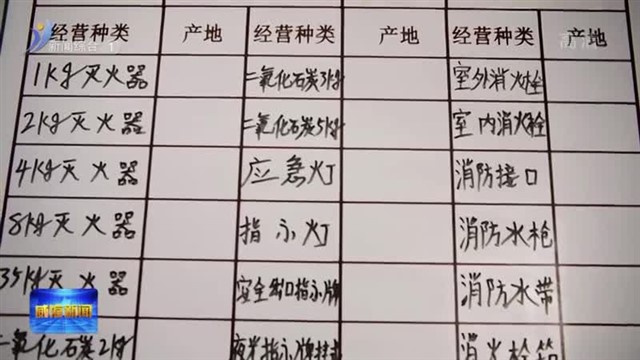 新闻综合 1
经营种类 产地 经营种类 产地 经营种类 产地
1kg灭火器 二氧化石炭3kg 室外消火栓
2kg灭火器 二氧化石炭5kg 室内消火栓
4kg灭火器 应急灯 消防接口
8kg灭火器 指示灯 消防水枪
35kg灭火器 安全出口指示牌 消防水带
威海新闻
二氧化石炭2kg 夜光指示牌 消火栓箱